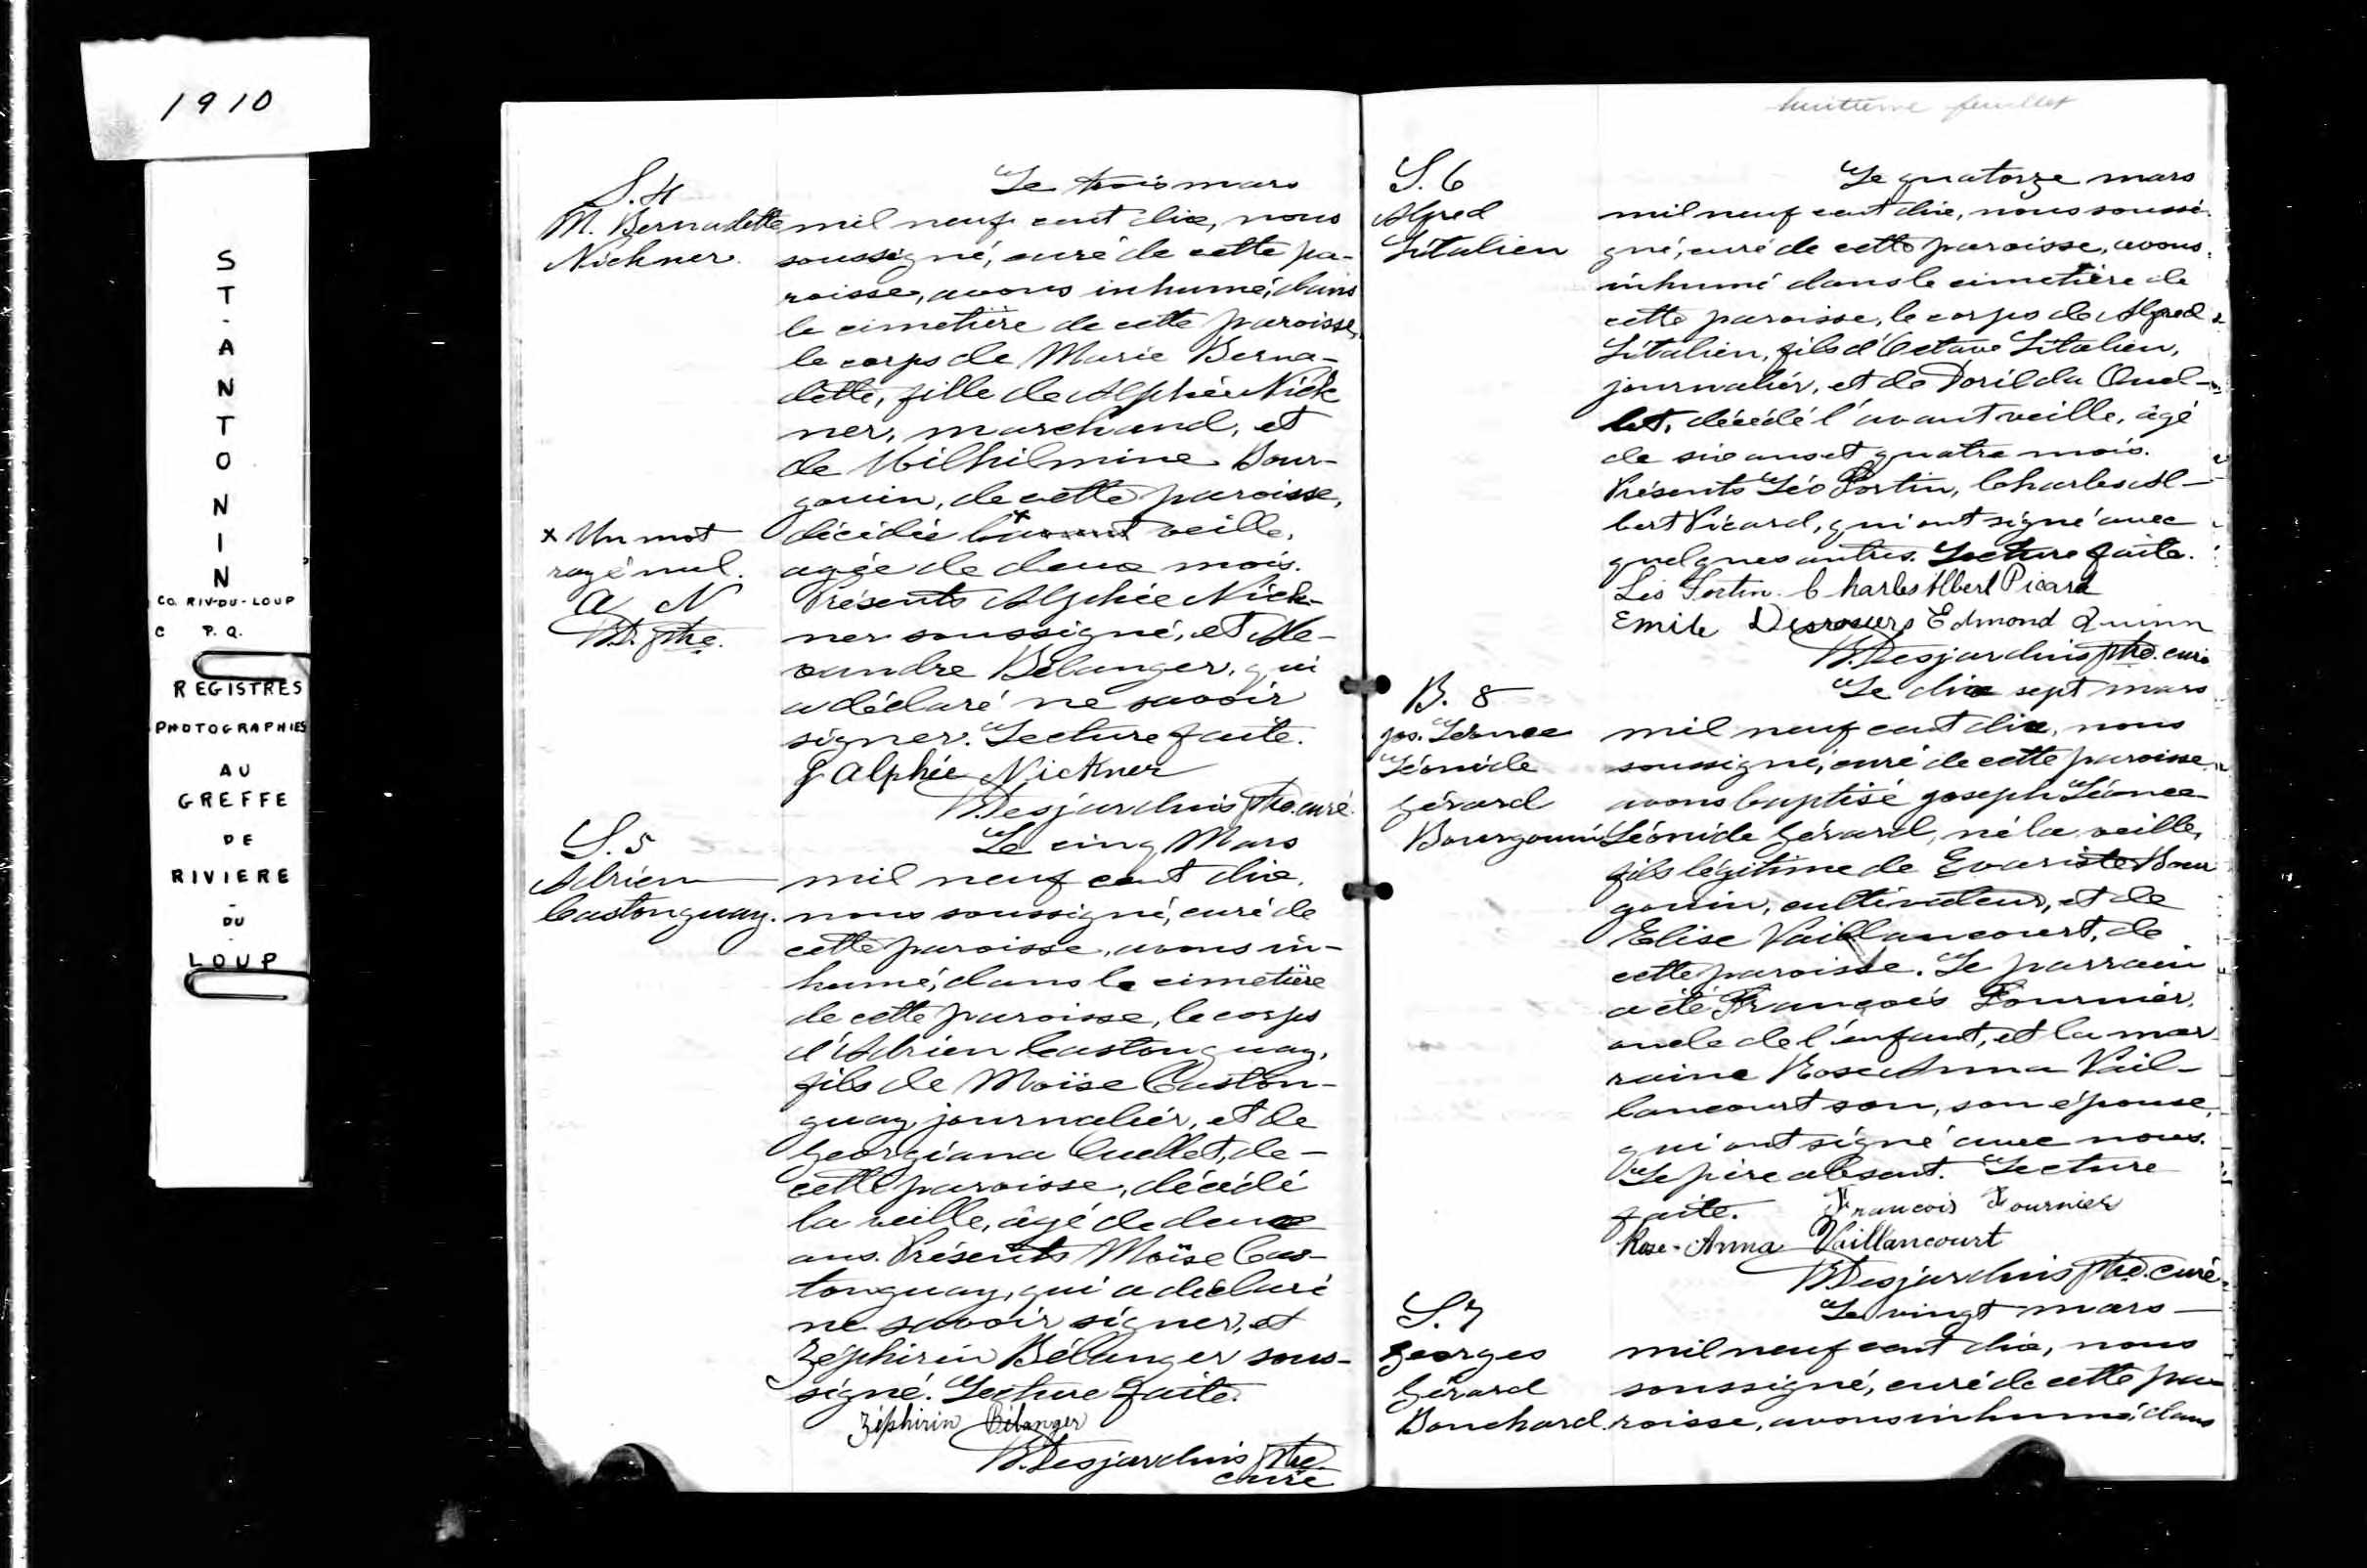 1910
ST-ANTONIN
CO. RIV-DU-LOUP
C P.Q.
REGISTRES
PHOTOGRAPHIES
AU
GREFFE
DE
RIVIERE
-
DU
-
LOUP
S. 4
M. Bernadette
Nickner.
Le trois mars
mil neuf cent dix, nous
soussigné, curé de cette pa-
roisse, avons inhumé, dans
le cimetière de cette paroisse,
le corps de Marie Berna-
dette, fille de Alphée Nick
ner, marchand, et
de Wilhilmine Bour-
gouin, de cette paroisse,
décédée l'avant veille,
agée de deux mois.
Présents Alphée Nick-
ner soussigné, et Ale-
xandre Bélanger, qui
a déclaré ne savoir
signer. Lecture faite.
J Alphée Nickner
Desjardins ptre. curé.
x Un mot
rayé nul.
A N
D. ptre.
S. 5
Adrien
Castonguay.
Le cinq Mars
mil neuf cent dix,
nous soussigné, curé de
cette paroisse, avons in-
humé, dans le cimetière
de cette paroisse, le corps
d'Adrien Castonguay,
fils de Moïse Caston-
guay journalier, et de
Georgiana Ouellet, de
cette paroisse, décédé
la veille, âgé de deux
ans. Présents Moïse Cas-
tonguay, qui a déclaré
ne savoir signer, et
Zéphirin Bélanger sous-
signé. Lecture faite.
Zéphirin Bélanger
Desjardins ptre.
curé
huitième feuillet
S. 6
Alfred
Litalien
Le quatorze mars
mil neuf cent dix, nous soussi-
gné, curé de cette paroisse, avons
inhumé dans le cimetière de
cette paroisse, le corps de Alfred
Litalien, fils d'Octave Litalien,
journalier, et de Dorilda Ouel-
let, décédé l'avant veille, âgé
de six ans et quatre mois.
Présents Léo Fortin, Charles Al-
bert Picard, qui ont signé avec
quelques autres. Lecture faite.
Léo Fortin. Charles Albert Picard
Emile Desrosiers Edmond Quinn
Desjardins ptre. curé
B. 8
Jos. Léonce
Léonide
Gérard
Bourgouin
Le dix sept mars
mil neuf cent dix, nous
soussigné, curé de cette paroisse
avons baptisé Joseph Léonce
Léonide Gérard, né la veille,
fils légitime de Evariste Bour
gouin, cultivateur, et de
Elise Vaillancourt, de
cette paroisse. Le parrain
a été François Fournier,
oncle de l'enfant, et la mar
raine Rose Anna Vail-
lancourt son, son épouse,
qui ont signé avec nous.
Le père absent. Lecture
faite. Francois Fournier
Rose-Anna Vaillancourt
Desjardins ptre. curé
S. 7
Georges
Gérard
Bouchard.
Le vingt mars
mil neuf cent dix, nous
soussigné, curé de cette pa
roisse, avons inhumé, dans